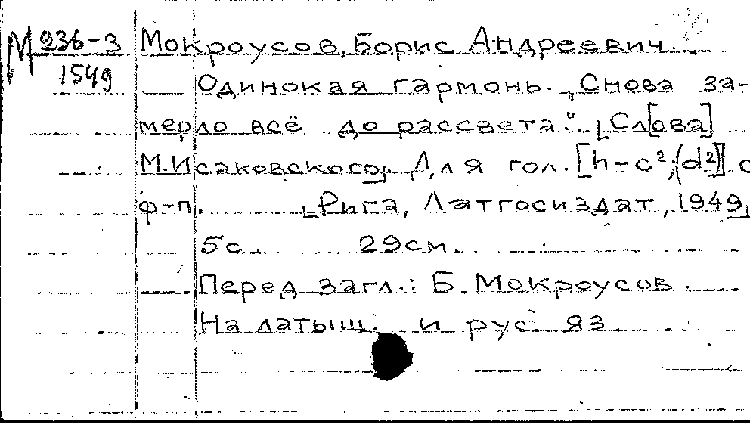 М 236-3 Мокроусов, Борис Андреевич
1549 Одинокая гармонь. „Снова за-
мерло всё до рассвета". Сл[ова]
М. Исаковского. Для гол. [h-c²,(d²)] с
ф-п. Рига, Латгосиздат, 1949,
5с. 29см.
Перед загл.: Б. Мокроусов
На латыш. и рус яз